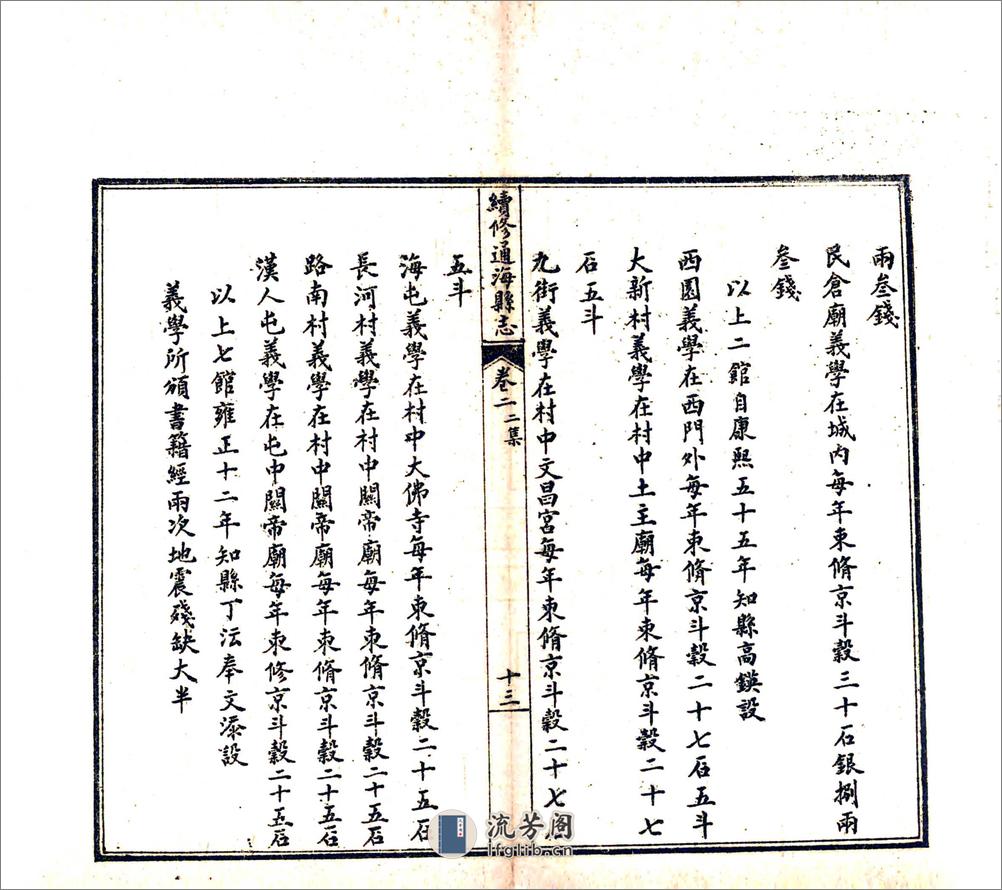 兩叁錢
民倉廟義學在城内每年束脩京斗穀三十石銀捌兩
叁錢
以上二館自康熙五十五年知縣高鍈設
西園義學在西門外每年束脩京斗穀二十七石五斗
大新村義學在村中土主廟每年束脩京斗穀二十七
石五斗
九街義學在村中文昌宮每年束脩京斗穀二十七
續修通海縣志
卷二 二集
十三
五斗
海屯義學在村中大佛寺每年束脩京斗穀二十五石
長河村義學在村中關帝廟每年束脩京斗穀二十五石
路南村義學在村中關帝廟每年束脩京斗穀二十五石
漢人屯義學在屯中關帝廟每年束修京斗穀二十五石
以上七館雍正十二年知縣丁法奉文添設
義學所頒書籍經兩次地震殘缺大半
流芳阁
lfglib.cn